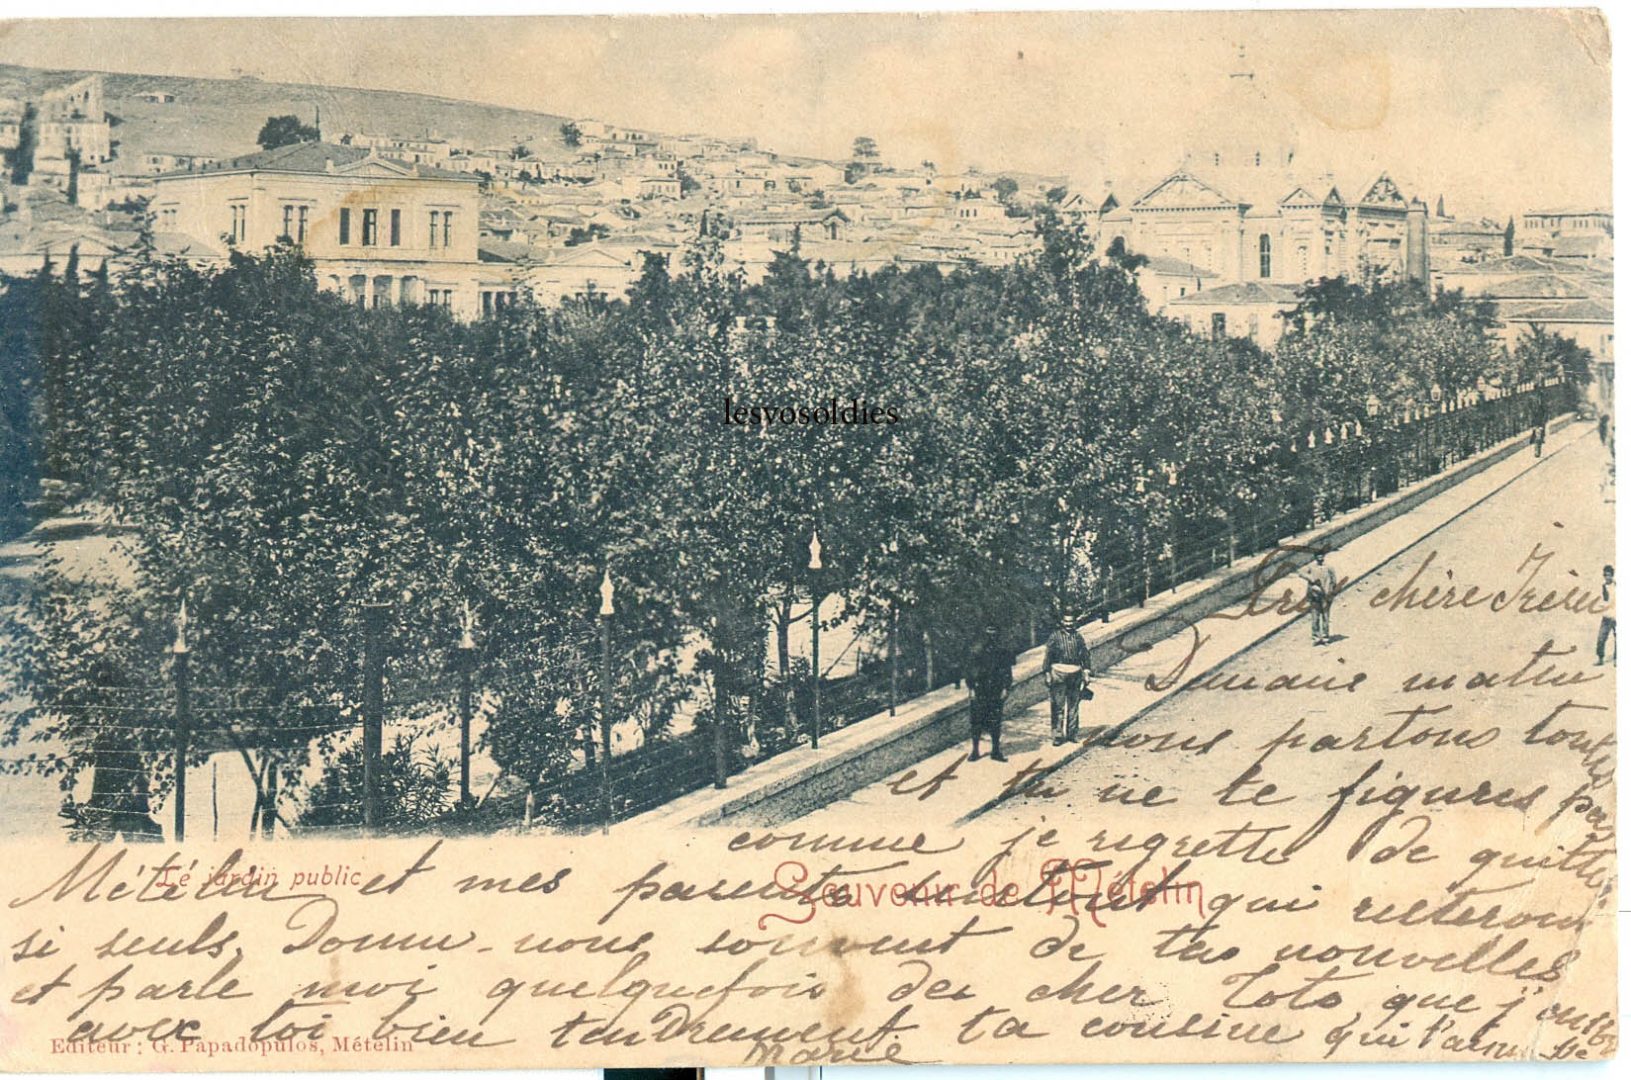 lesvosoldies
Très chère Irène
matin
nous partons toutes
et tu ne te figures pas
comme je regrette de quitter
Le jardin public
Souvenir de Mételin
Mételin et mes parents surtout qui resteront
si seuls. Donne-nous souvent de tes nouvelles
et parle moi quelquefois de cher Toto que j'
avec toi bien tendrement. ta cousine qui t'aime
Marie
Editeur: G. Papadopulos, Mételin